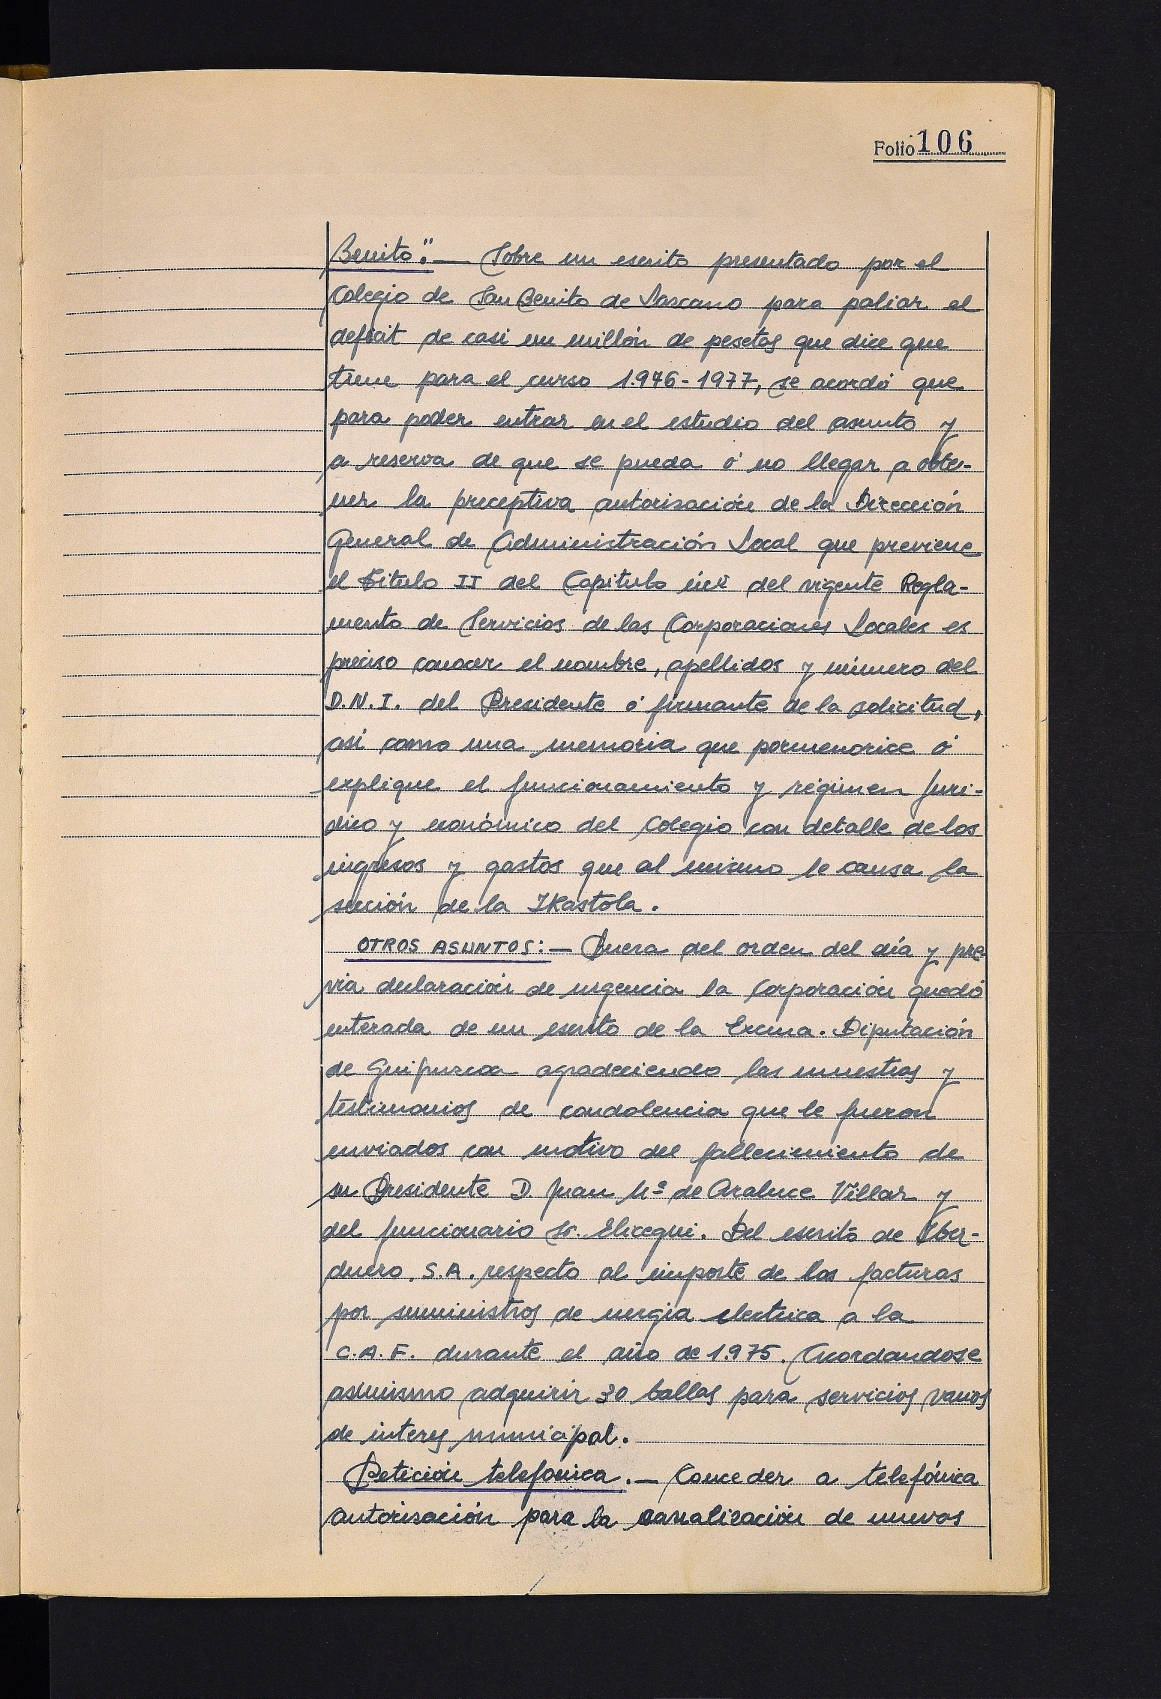 Folio 106
Benito".— Sobre un escrito presentado por el
Colegio de San Benito de Lascano para paliar el
deficit de casi un millón de pesetas que dice que
tiene para el curso 1.976-1977, se acordó que
para poder entrar en el estudio del asunto y
a reserva de que se pueda ó no llegar a obte-
ner la preceptiva autorisación de la Dirección
General de Administración Local que previene
el Titulo II del Capitulo del vigente Regla-
mento de Servicios de las Corporaciones Locales es
preciso conocer el nombre, apellidos y número del
D.N.I. del Presidente ó firmante de la solicitud,
asi como una memoria que pormenorice ó
explique el funcionamiento y régimen juri-
dico y económico del Colegio con detalle de los
ingresos y gastos que al mismo le causa la
sección de la Ikastola.
OTROS ASUNTOS:— Fuera del orden del día y pre
via declaración de urgencia la Corporación quedó
enterada de un escrito de la Excma. Diputación
de Guipuzcoa agradeciendo las muestras y
testimonios de condolencia que le fueron
enviados con motivo del fallecimiento de
su Presidente D. Juan Mª de Araluce Villar y
del funcionario Sr. Elicegui. Del escrito de Iber-
duero, S.A. respecto al importe de las facturas
por suministros de energia electrica a la
C.A.F. durante el año de 1.975. Acordandose
asimismo adquirir 30 ballas para servicios varios
de interes municipal.
Petición telefonica.— Conceder a telefónica
autorisación para la canalización de nuevos